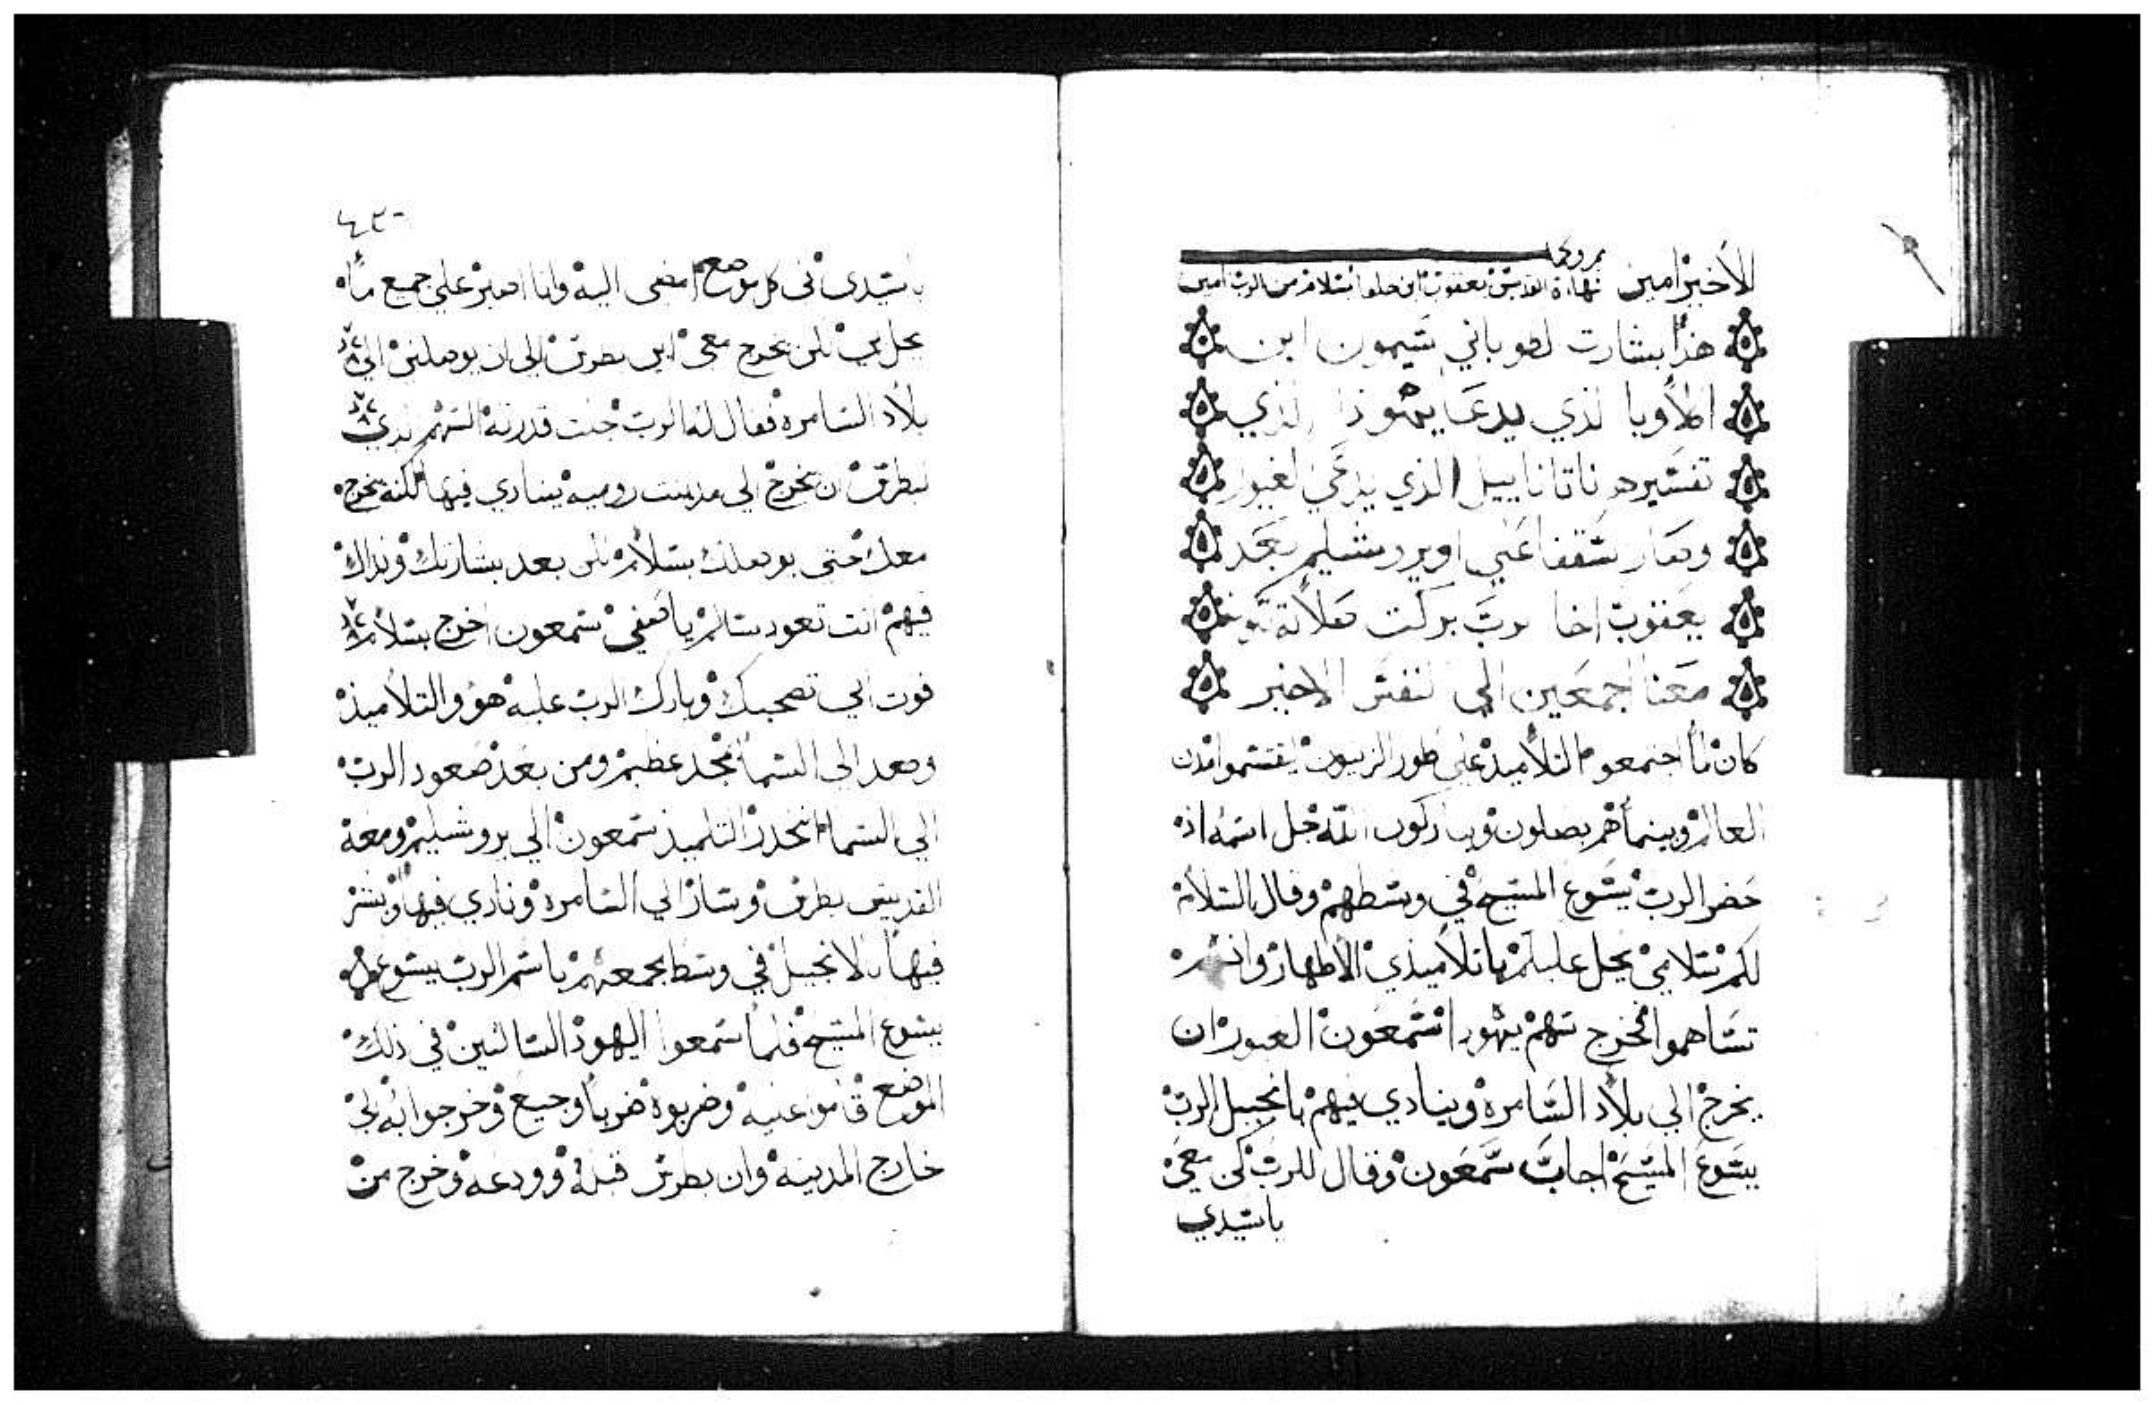 للأخير امين شهادة القديس يعقوب ابن حلفا بسلام من الرب امين
هذا بشارت لطوباني شيمون ابن
اكلأوبا لذي يدعا يهوذا الذي
تفسيره ناتاناييل الذي يدعى لغيور
وصار سقفا على اويروشليم بعد
يعقوب اخا لرب بركت صلاته تكون
معنا اجمعين الي لنفس الاخير
كان لما اجتمعوا التلاميذ على طور الزيتون ليقسموا مدن
العالم وبينما هم يصلون ويباركون الله جل اسمه اذ
حضر الرب يسوع المسيح في وسطهم وقال السلام
لكم سلامي يحل عليكم يا تلاميذي الأطهار وانهم
تساهموا فخرج سهم يهودا سمعون الغيور ان
يخرج الي بلاد السامرة وينادي فيهم بانجيل الرب
يسوع المسيح اجاب سمعون وقال للرب كن معي
يا سيدي
يا سيدي في كل موضع امضى اليه وانا اصبر على جميع ما
يحل بي لكن يخرج معي ابي بطرس الي ان يوصلني الي
بلاد السامره فقال له الرب جلت قدرته السهم لذي
لبطرس ان يخرج الي مدينت روميه ينادي فيها لكنه يخرج
معك حتى يوصلك بسلام لكن بعد بشارتك ونداك
فيهم انت تعود سالم يا صفي سمعون اخرج بسلام
قوت ابي تصحبك وبارك الرب عليه هو والتلاميذ
وصعد الى السما بمجد عظيم ومن بعد صعود الرب
الي السما انحدر التلميذ سمعون الي يروشليم ومعه
القديس بطرس وسار الي السامره ونادي فيها وبشر
فيها بالانجيل في وسط مجمعهم باسم الرب يسوع
يسوع المسيح فلما سمعوا اليهود الساكنين في ذلك
الموضع قاموا عليه وضربوه ضربا وجيع وخرجوا به الى
خارج المدينه وان بطرس قبله وودعه وخرج من